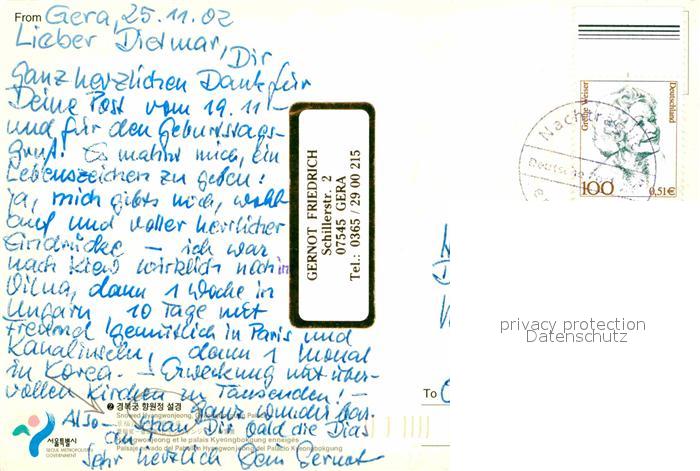 From Gera, 25.11.02
Lieber Dietmar, Dir
ganz herzlichen Dank für
Deine Post vom 19.11
und für den Geburtstags-
gruß. Es mahnt mich, ein
Lebenszeichen zu geben!
ja, mich gibts noch, wohl-
auf und voller herrlicher
Eindrücke – ich war
nach Kiew wirklich noch in
Vilna, dann 1 Woche in
Ungarn 10 Tage mit
Freund gemütlich in Paris und
Kanalinseln, dann 1 Monat
in Korea. – Erweckung mit über-
vollen Kirchen zu Tausenden! –
Ganz wunderbar.
Also – schau Dir bald die Dias
an
Sehr herzlich Dein Gernot
GERNOT FRIEDRICH
Schillerstr. 2
07545 GERA
Tel.: 0365 / 29 00 215
Grethe Weiser
Deutschland
100
0,51€
Nachträgl
Deutsche Post
privacy protection
Datenschutz
To
❷ 경복궁 향원정 설경
서울특별시
SEOUL METROPOLITAN
GOVERNMENT
Hyangwonjeong et le palais Kyeongbokgung enneigés
Paisaje nevado del Pabellón Hyangwonjeong del Palacio Kyeongbokgung